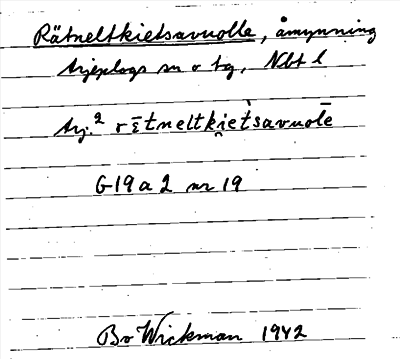 Rätneltkietsavuolle, åmynning
Arjeplogs sn o tg, Nbt l
Arj.² rε̄tneltki̯et̀savuolē
G19a2 nr 19
Bo Wickman 1942